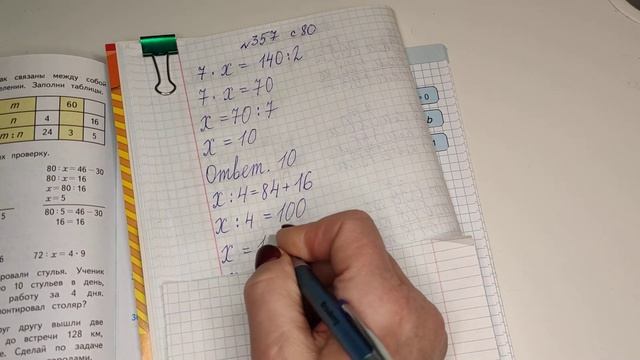 №357 с 80
7 · x = 140 : 2
7 · x = 70
x = 70 : 7
x = 10
Ответ. 10
x : 4 = 84 + 16
x : 4 = 100
x = 1
ак связаны между собой
елении. Заполни таблицы.
m 60
n 4 16
m : n 24 3 5
их проверку.
80 : x = 46 − 30
80 : x = 16
x = 80 : 16
x = 5
80 : 5 = 46 − 30
16 = 16
72 : x = 4 · 9
ировали стулья. Ученик
по 10 стульев в день,
работу за 4 дня.
монтировал столяр?
руг другу вышли две
до встречи 128 км,
е. Сделай по задаче
= 0
b